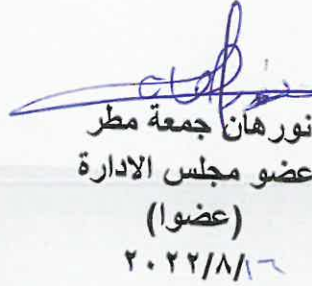 نورهان جمعة مطر
عضو مجلس الادارة
(عضوا)
٢٠٢٢/٨/١٦